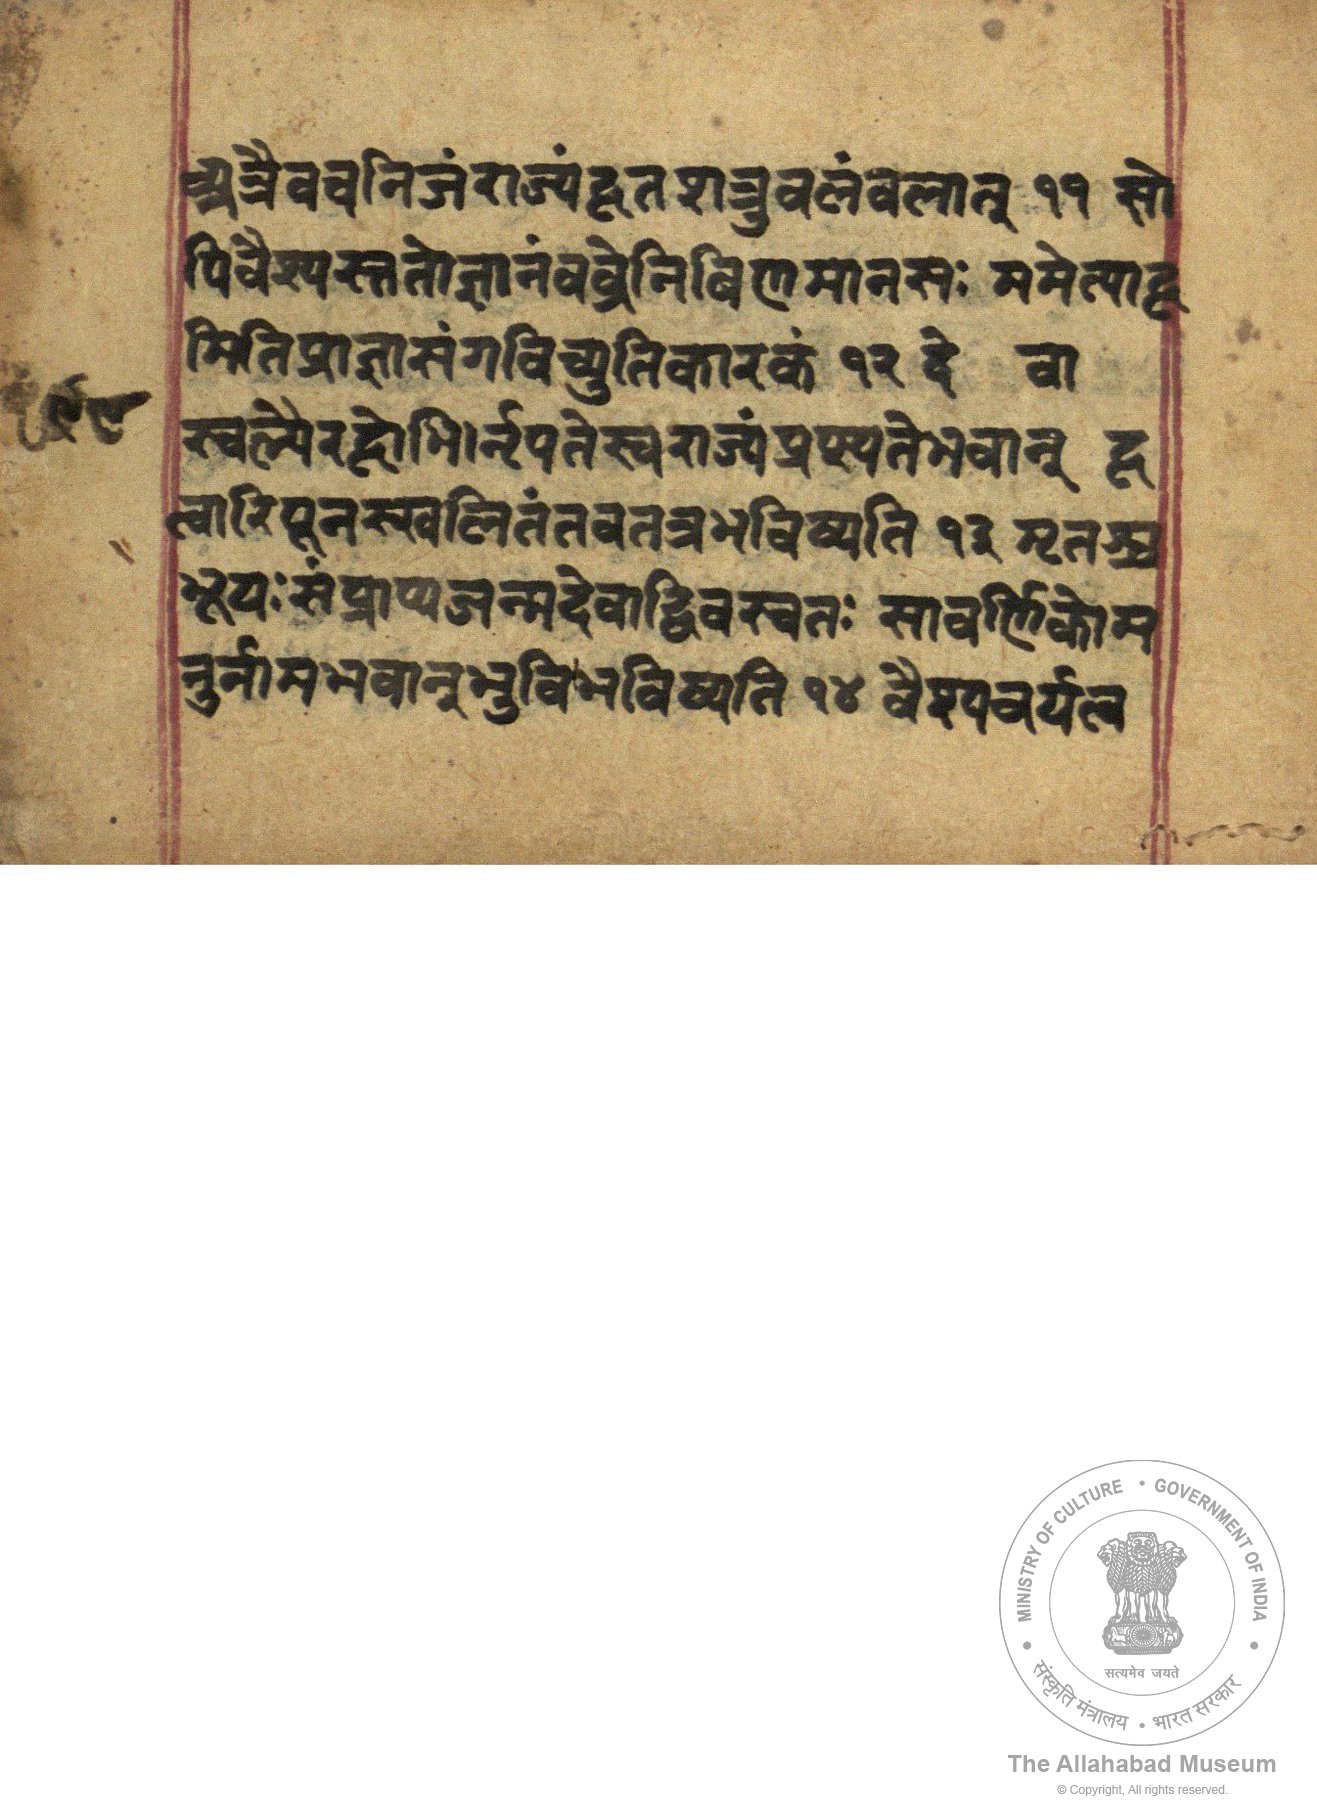 अत्रैवचनिजंराज्यंहृतशत्रुवलंवलात् ११ सो
पिवैश्यस्ततोज्ञानंवव्रेनिर्विणमानसः ममेत्याह
मितिप्राज्ञासंगविच्युतिकारकं १२ दे वा
स्वल्पैरहोभिर्नृपतेस्वराज्यंप्रप्स्यतेभवान् ह
त्वारिपूनस्खलितंतवतत्रभविष्यति १३ मृतश्च
भूयःसंप्राप्यजन्मदेवाद्विवस्वतः सावर्णिकोम
नुर्नामभवान्भुविभविष्यति १४ वैश्यवर्यत्व
MINISTRY OF CULTURE • GOVERNMENT OF INDIA
सत्यमेव जयते
संस्कृति मंत्रालय • भारत सरकार
The Allahabad Museum
© Copyright, All rights reserved.